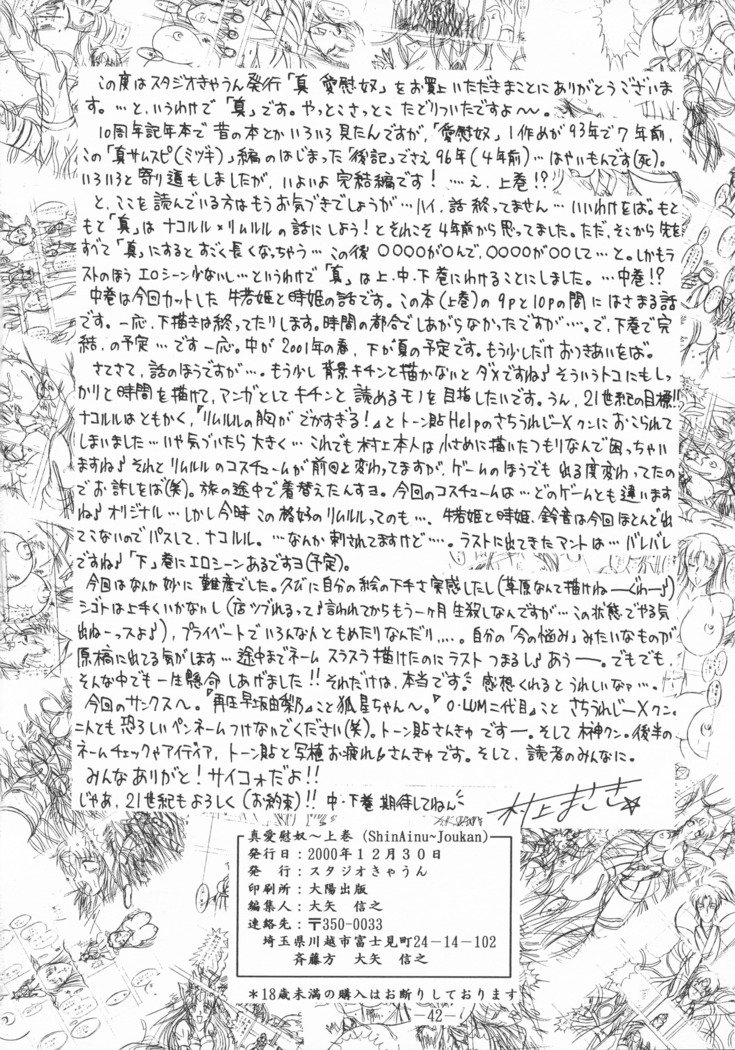 この度はスタジオきゃうん発行「真 愛慰奴」をお買上いただきまことにありがとうございま
す。…と、いうわけで「真」です。やっとこさっとこ たどりついたですよ〜〜。
10周年記年本で昔の本とかいろいろ見たんですが、「愛慰奴」1作めが93年で7年前、
この「真サムスピ(ミツキ)」編のはじまった「後記」でさえ96年(4年前)…はやいもんです(死)。
いろいろと寄り道もしましたが、いよいよ完結編です! …え、上巻!?
と、ここを読んでいる方はもうお気づきでしょうが…ハイ、話終ってません…いいわけをば。もと
もと「真」はナコルル×リムルルの話にしよう!とそれこそ4年前から思ってました。ただ、そこから先を
すべて「真」にするとすごく長くなっちゃう…この後〇〇〇〇が〇んで、〇〇〇〇が〇〇して…と。しかもラ
ストのほう エロシーン少ないし…というわけで「真」は上・中・下巻にわけることにしました。…中巻!?
中巻は今回カットした 牛若姫と時姫の話です。この本(上巻)の9Pと10Pの間にはさまる話
です。一応、下描きは終ってたりします。時間の都合でしあがらなかったですが…。で、下巻で完
結、の予定…です一応。中が2001年の春、下が夏の予定です。もう少しだけおつきあいをば。
さてさて、話のほうですが…。もう少し背景キチンと描かないとダメですね♪そういうトコにもしっ
かりと時間を描けて、マンガとしてキチンと読めるモノを目指したいです。うん、21世紀の目標!!
ナコルルはともかく、『リムルルの胸がでかすぎる!』とトーン貼Helpのさちうれじ―Xクンにおこられて
しまいました…いや気づいたら大きく…これでも村上本人は小さめに描いたつもりなんで困っちゃい
ますね♪それとリムルルのコスチュームが前回と変わってますが、ゲームのほうでも出る度変わってたの
でお許しをば(笑)。旅の途中で着替えたんすヨ。今回のコスチュームは…どのゲームとも違います
ね♪オリジナル…しかし今時この格好のリムルルってのも…。牛若姫と時姫、鈴音は今回ほとんど出
てこないのでパスして、ナコルル。…なんか刺されてますけど…。ラストに出てきたアントは…バレバレ
ですね♪「下」巻にエロシーンあるですヨ(予定)。
今回はなんか妙に難産でした。久びに自分の絵の下手さ実感したし(草原なんて描けね――ぐわ―♪)
シゴトは上手くいかないし(店ツブれるって♪言われてからもう一ヶ月生殺しなんですが…この状態でやる気
出ね―っスよ♪)、プライベートでいろんな人ともめたりなんだり…。自分の「今の悩み」みたいなものが
原稿に出てる気がします…途中までネーム スラスラ描けたのにラスト つまるし♪あう―――。でもでも、
そんな中でも一生懸命しあげました!!それだけは、本当です。感想くれるとうれしいなァ…。
今回のサンクスへ。『再圧早坂由梨乃』こと狐月ちゃんへ。『O・LUM二代目』こと さちうれじ―Xクン。
二人とも恐ろしいペンネームつけないでください(笑)。トーン貼さんきゅです―。そして木神クン。後半の
ネームチェックやアイディア、トーン貼と写植お疲れ♪さんきゅです。そして、読者のみんなに。
みんなありがと!サイコォだよ!!
じゃあ、21世紀もよろしく(お約束)!! 中・下巻期待してねん
村上まさき☆
真愛慰奴〜上巻 (ShinAinu~Joukan)
発行日:2000年12月30日
発 行:スタジオきゃうん
印刷所:大陽出版
編集人:大矢 信之
連絡先:〒350-0033
埼玉県川越市富士見町24−14−102
斉藤方 大矢 信之
*18歳未満の購入はお断りしております
-42-